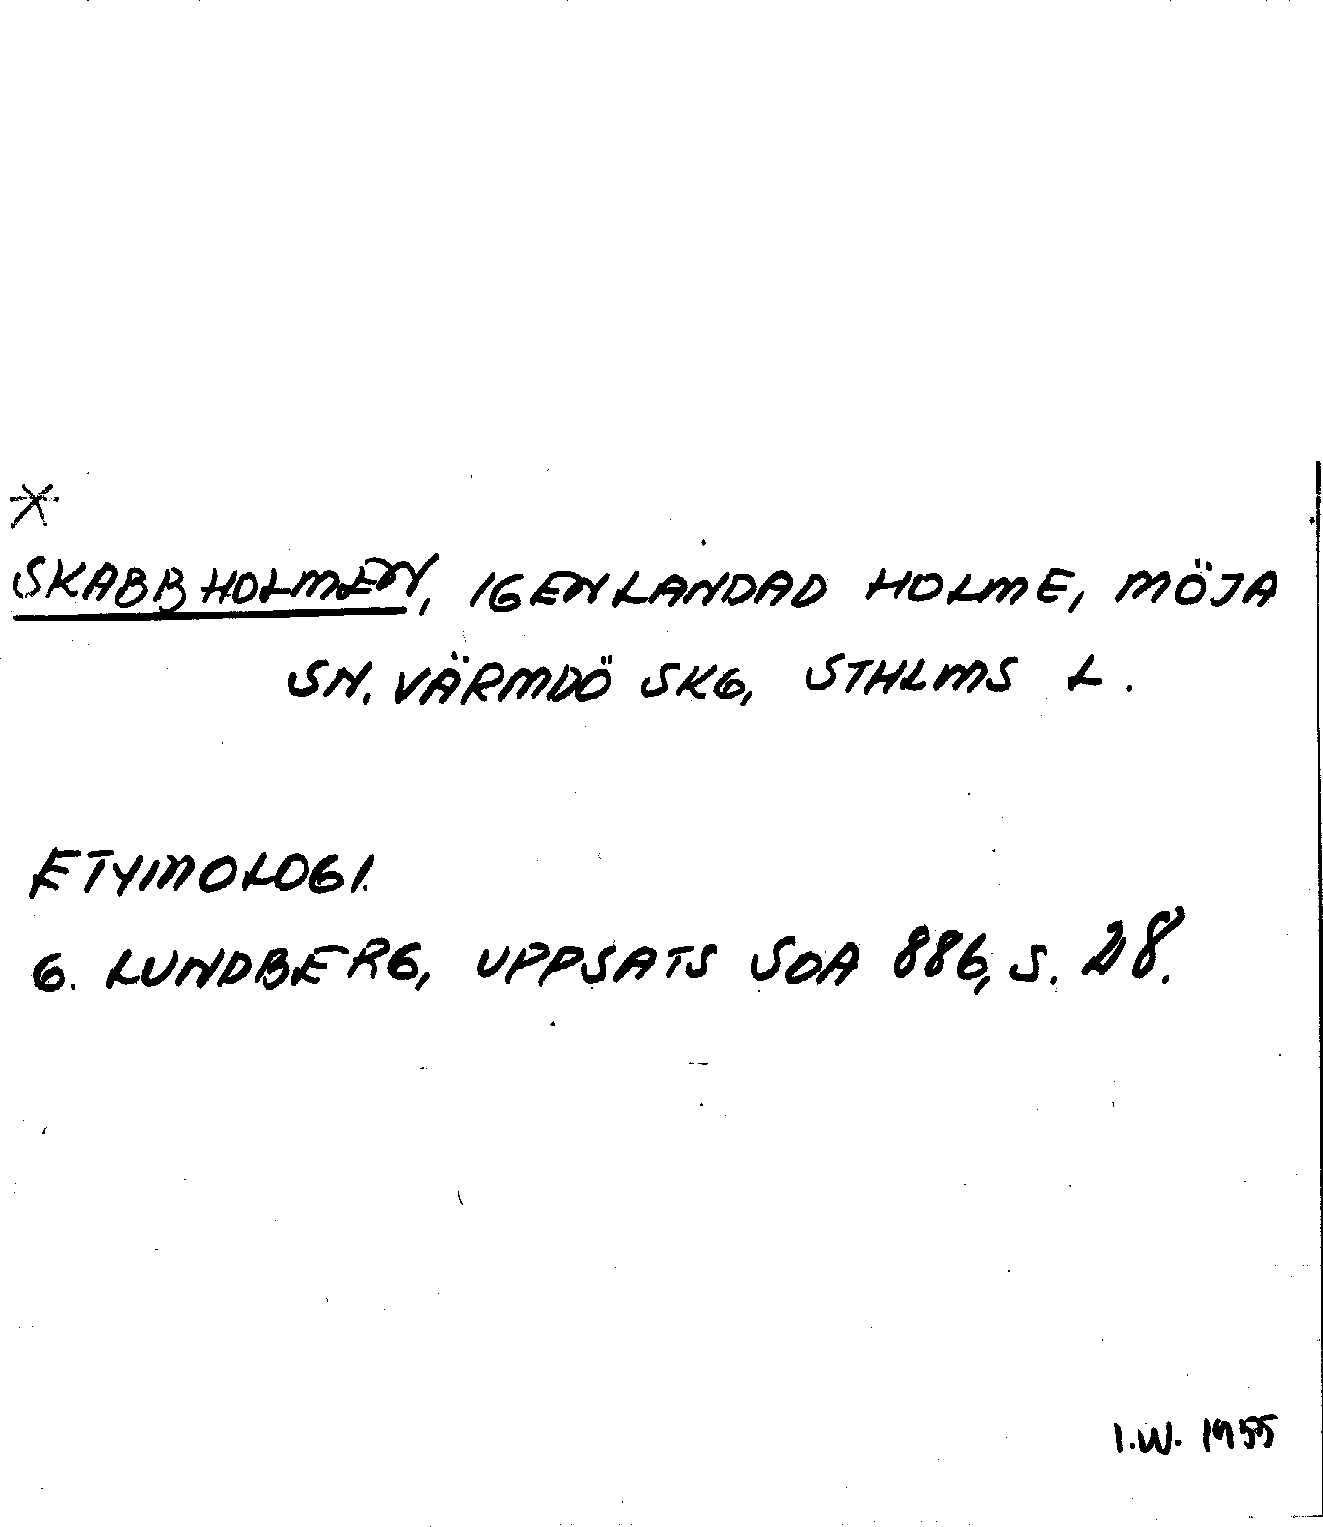 *
SKABBHOLMEN, IGENLANDAD HOLME, MÖJA
SN. VÄRMDÖ SKG, STHLMS L.
ETYMOLOGI.
G. LUNDBERG, UPPSATS SOA 886, S. 28.
I.W. 1955